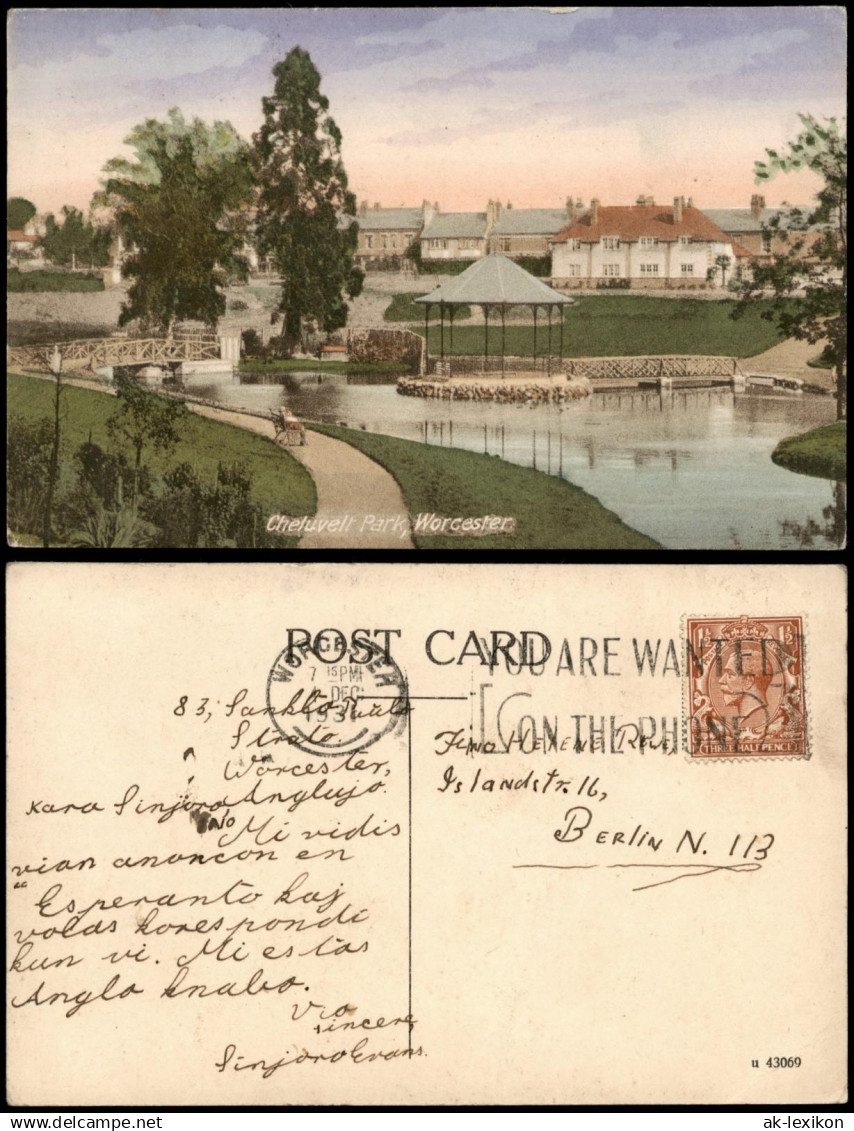 Cheluvelt Park, Worcester.
POST CARD
WORCESTER
7 15 PM
DEC
YOU ARE WANTED
ON THE PHONE
THREE HALF PENCE
83, Sankta
Strato.
Worcester,
Anglujo.
Kara Sinjoro
Mi vidis
vian anoncon en
"Esperanto kaj
volas korespondi
kun vi. Mi estas
Anglo knabo.
Via
sincere,
Sinjoro Evans.
Helene
Islandstr. 16,
Berlin N. 113
u 43069
ak-lexikon